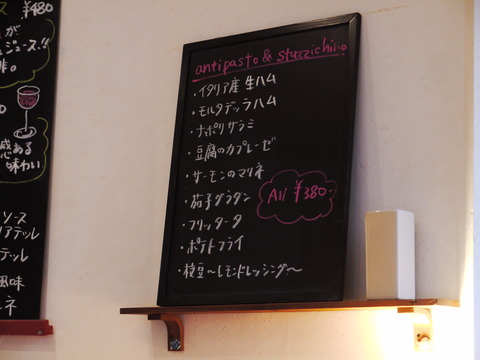 ¥480
が
ジュース!!
感ある
味わい
ソース
リアテッレ
テッレ
風味
ネ
antipasto & stuzzichino
・イタリア産 生ハム
・モルタデッラハム
・ナポリサラミ
・豆腐のカプレーゼ
・サーモンのマリネ
・茄子グラタン
・フリッタータ
・ポテトフライ
・枝豆〜レモンドレッシング〜
All ¥380-